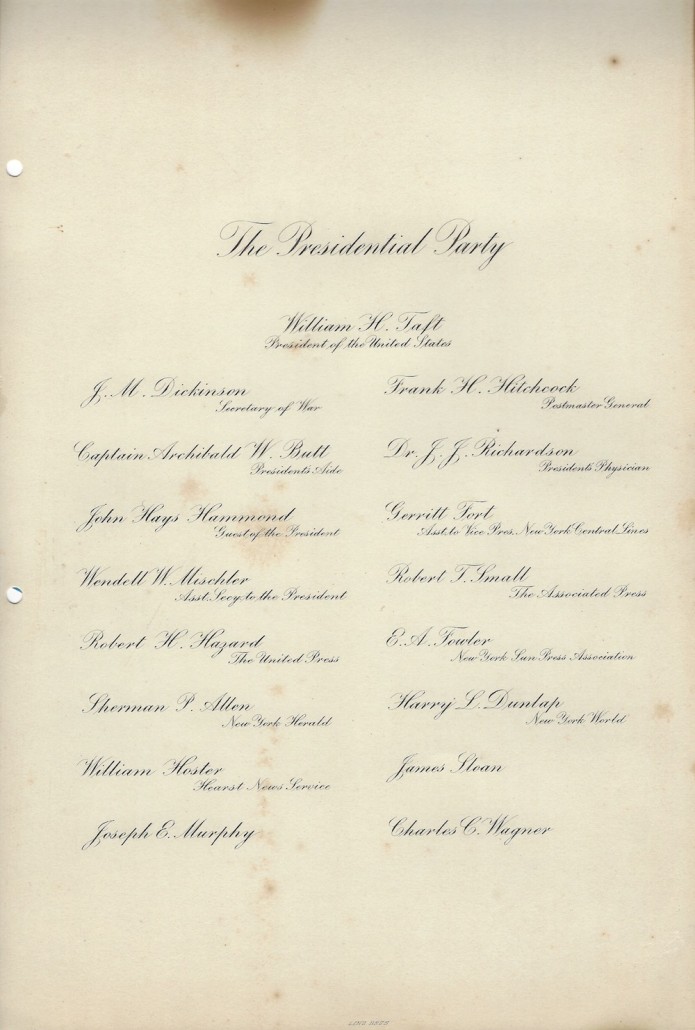 The Presidential Party
William H. Taft
President of the United States
J. M. Dickinson
Secretary of War
Frank H. Hitchcock
Postmaster General
Captain Archibald W. Butt
Presidents Aide
Dr. J. J. Richardson
Presidents Physician
John Hays Hammond
Guest of the President
Gerritt Fort
Asst. to Vice Pres. New York Central Lines
Wendell W. Mischler
Asst. Secy to the President
Robert T. Small
The Associated Press
Robert H. Hazard
The United Press
E. A. Fowler
New York Sun Press Association
Sherman P. Allen
New York Herald
Harry L. Dunlap
New York World
William Hoster
Hearst News Service
James Sloan
Joseph E. Murphy
Charles C. Wagner